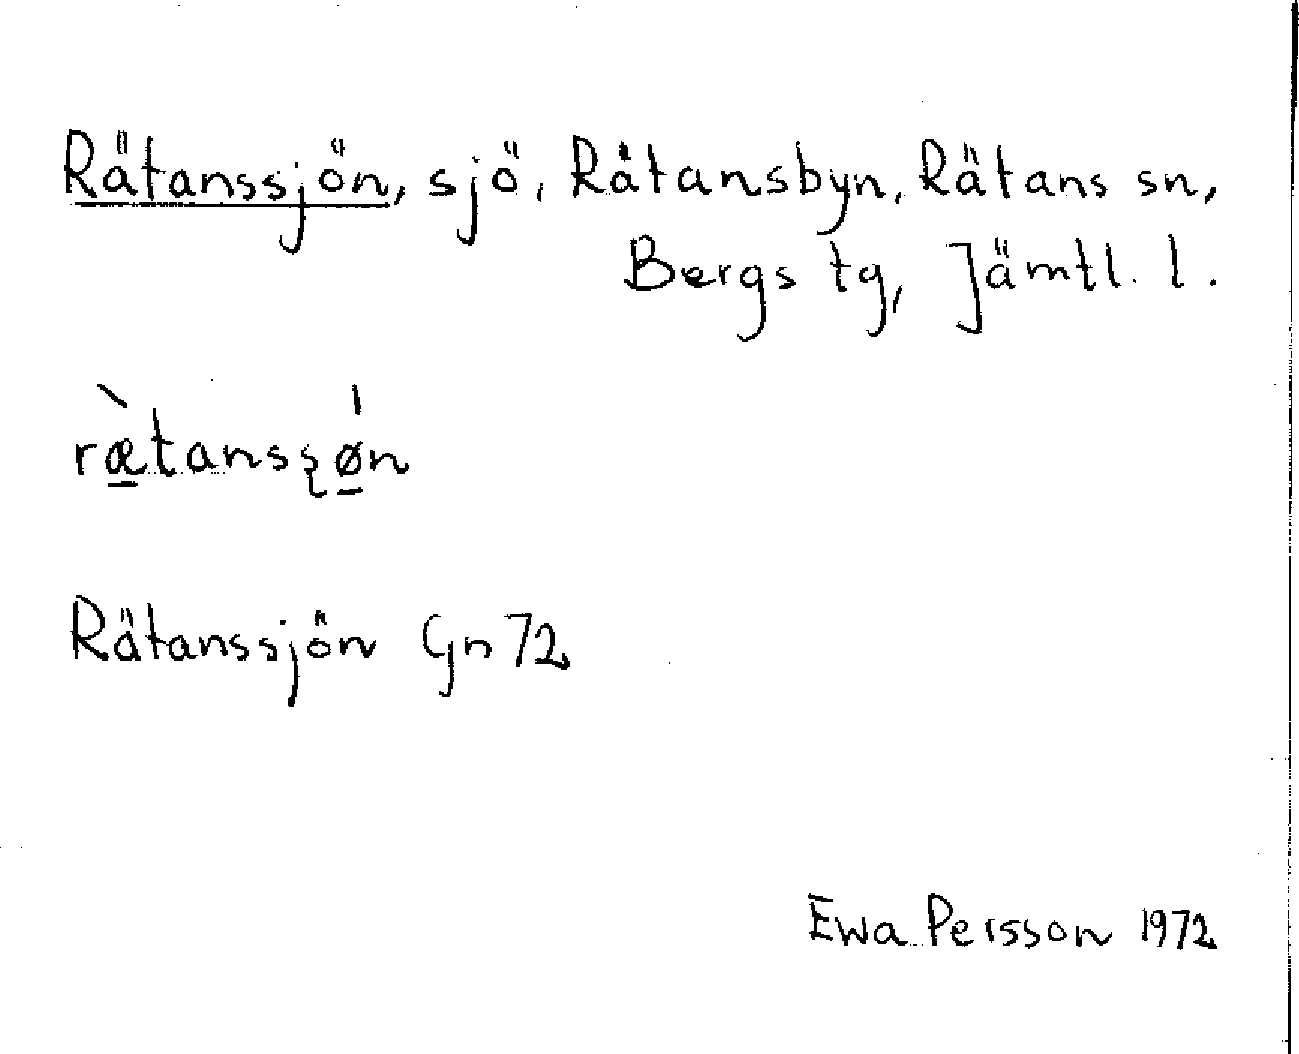 Rätanssjön, sjö, Rätansbyn, Rätans sn,
Bergs tg, Jämtl. l.
ræ̱̀tansʂǿ̱n
Rätanssjön Gn 72
Ewa Persson 1972